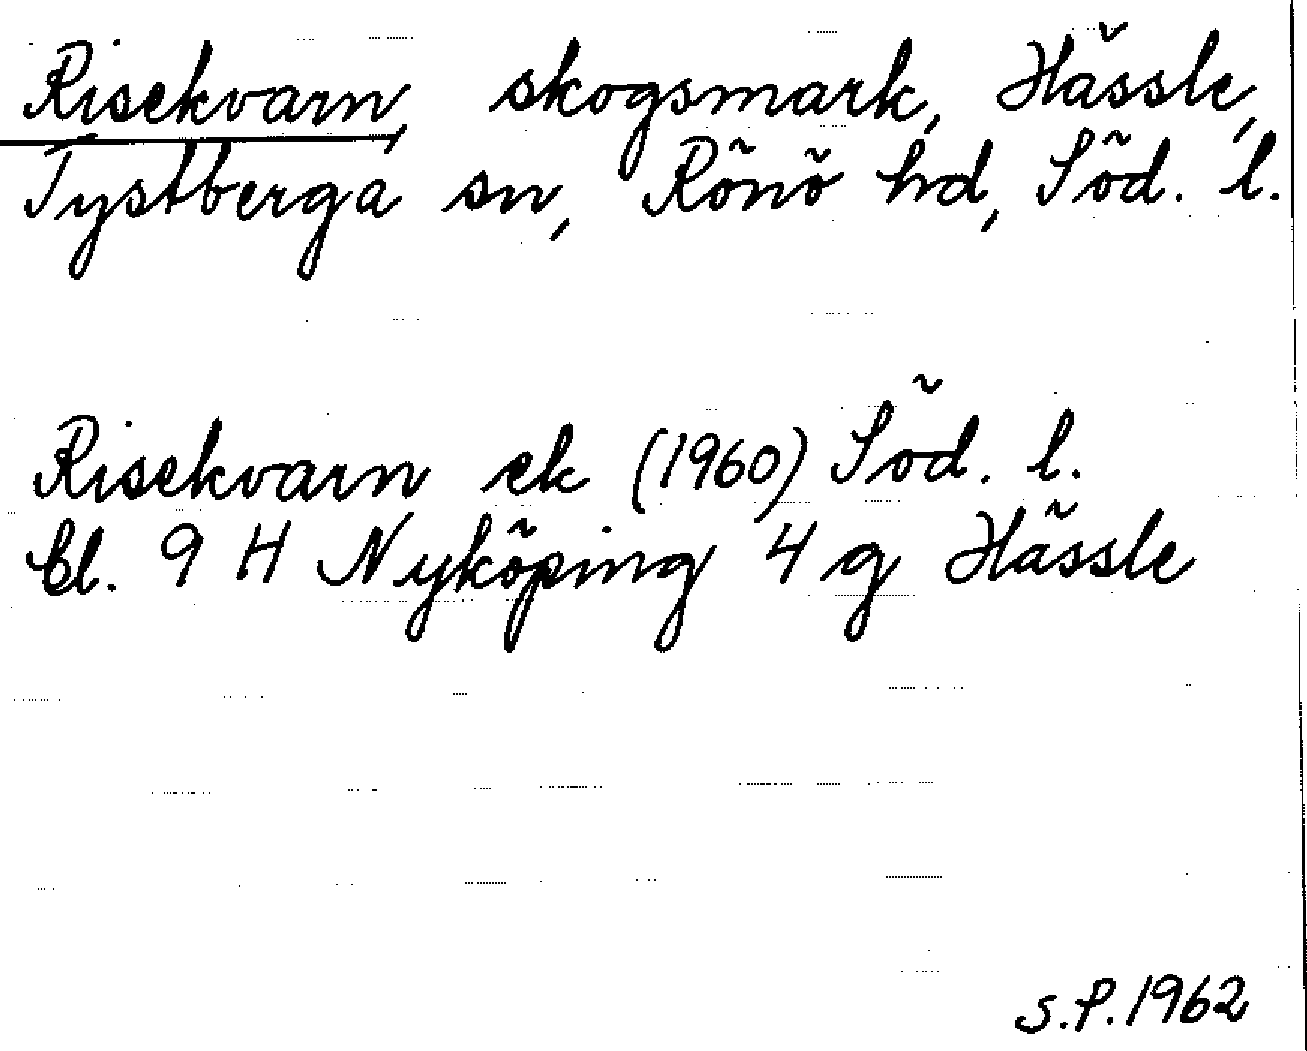 Risekvarn, skogsmark, Hässle,
Tystberga sn, Rönö hd, Söd. l.
Risekvarn ek (1960) Söd. l.
bl. 9 H Nyköping 4 g Hässle
S.P. 1962